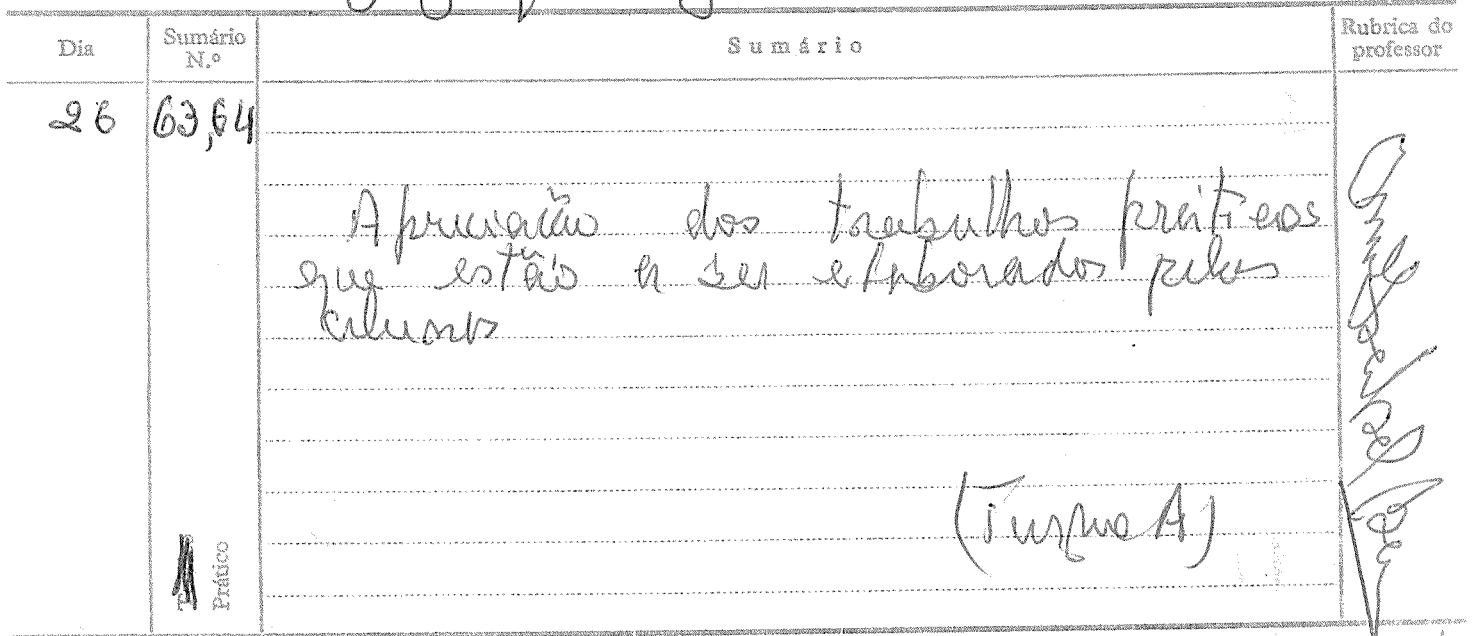 Dia
Sumário N.º
Sumário
Rubrica do professor
26
63,64
Apreciação dos trabalhos práticos
que estão a ser elaborados pelos
alunos
(Turma A)
Prático